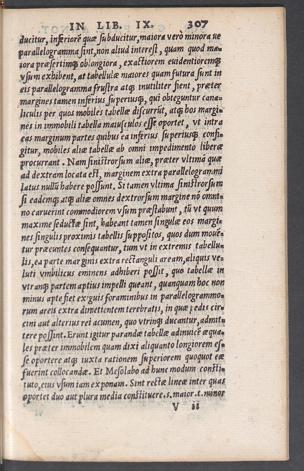 IN LIB. IX. 307
ducitur, inferiorē quæ subducitur, maiora verò minora ue
parallelogramma sint, non aliud interest, quam quod ma-
iora præsertimq; oblongiora, exactiorem euidentioremq;
vsum exhibent, at tabellulæ maiores quam futura sunt in
eis parallelogramma frustra atq; inutiliter fient, præter
margines tamen inferius superiusq;, qui obteguntur cana-
liculis per quos mobiles tabellæ discurrūt, atq; hos margi-
nes in immobili tabella maiusculos esse oportet, vt intra
eas marginum partes quibus ea inferius superiusq; confi-
gitur, mobiles aliæ tabellæ ab omni impedimento liberæ
procurrant. Nam sinistrorsum aliæ, præter vltimā quæ
ad dextram locata est, marginem extra parallelogrammi
latus nullū habere possunt. Si tamen vltima sinistrorsum
si eademq; atq; aliæ omnes dextrorsum margine nō omni-
no caruerint commodiorem vsum præstabunt, tū vt quum
maxime seductæ sint, habeant tamen singulæ eos margi-
nes singulis proximis tabellis suppositos, quos dum mouē-
tur præeuntes consequantur, tum vt in extremis tabellu-
lis, ea parte marginis extra rectanguli aream, aliquis ve-
luti vmbilicus eminens adhiberi possit, quo tabellæ in
vtranq; partem aptius impelli queant, quanquam hoc non
minus apte fiet exiguis foraminibus in parallelogrammo-
rum areis extra dimetientem terebratis, in quæ pedis cir-
cini aut alterius rei acumen, quo vtrinq; ducantur, admit-
tere possint. Erunt igitur parandæ tabellæ admuicē æqua-
les præter immobilem quam dixi aliquanto longiorem es-
se oportere atq; iuxta rationem superiorem quoquot eæ
fuerint collocandæ. Et Mesolabo ad hunc modum consti-
tuto, eius vsum iam exponam. Sint rectæ lineæ inter quas
oportet duo aut plura media constituere, s. maior. t. minor
V ii